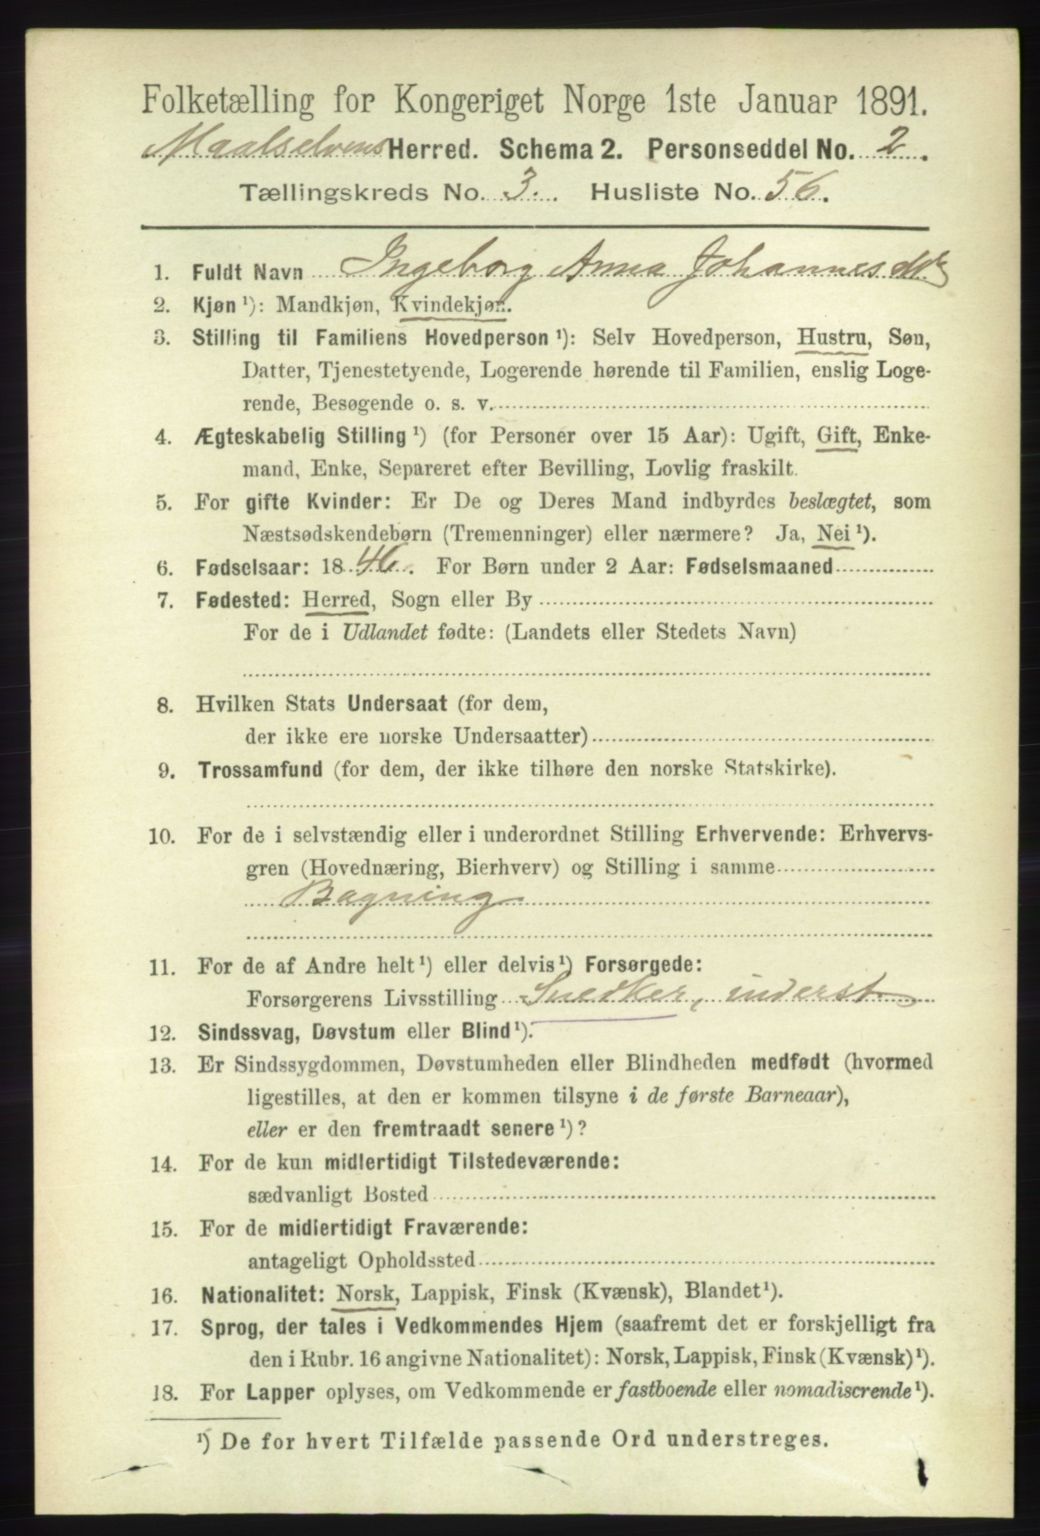 Folketælling for Kongeriget Norge 1ste Januar 1891.
Maalselvens Herred. Schema 2. Personseddel No. 2.
Tællingskreds No. 3. Husliste No. 56.
1. Fuldt Navn Ingeborg Anna Johannesdtr
2. Kjøn ¹): Mandkjøn, Kvindekjøn.
3. Stilling til Familiens Hovedperson ¹): Selv Hovedperson, Hustru, Søn,
Datter, Tjenestetyende, Logerende hørende til Familien, enslig Loge-
rende, Besøgende o. s. v.
4. Ægteskabelig Stilling ¹) (for Personer over 15 Aar): Ugift, Gift, Enke-
mand, Enke, Separeret efter Bevilling, Lovlig fraskilt.
5. For gifte Kvinder: Er De og Deres Mand indbyrdes beslægtet, som
Næstsødskendebørn (Tremenninger) eller nærmere? Ja, Nei ¹).
6. Fødselsaar: 1846. For Børn under 2 Aar: Fødselsmaaned
7. Fødested: Herred, Sogn eller By
For de i Udlandet fødte: (Landets eller Stedets Navn)
8. Hvilken Stats Undersaat (for dem,
der ikke ere norske Undersaatter)
9. Trossamfund (for dem, der ikke tilhøre den norske Statskirke).
10. For de i selvstændig eller i underordnet Stilling Erhvervende: Erhvervs-
gren (Hovednæring, Bierhverv) og Stilling i samme
Bagning
11. For de af Andre helt ¹) eller delvis ¹) Forsørgede:
Forsørgerens Livsstilling Snedker, inderst
12. Sindssvag, Døvstum eller Blind ¹).
13. Er Sindssygdommen, Døvstumheden eller Blindheden medfødt (hvormed
ligestilles, at den er kommen tilsyne i de første Barneaar),
eller er den fremtraadt senere ¹)?
14. For de kun midlertidigt Tilstedeværende:
sædvanligt Bosted
15. For de midlertidigt Fraværende:
antageligt Opholdssted
16. Nationalitet: Norsk, Lappisk, Finsk (Kvænsk), Blandet ¹).
17. Sprog, der tales i Vedkommendes Hjem (saafremt det er forskjelligt fra
den i Rubr. 16 angivne Nationalitet): Norsk, Lappisk, Finsk (Kvænsk) ¹).
18. For Lapper oplyses, om Vedkommende er fastboende eller nomadiserende ¹).
¹) De for hvert Tilfælde passende Ord understreges.